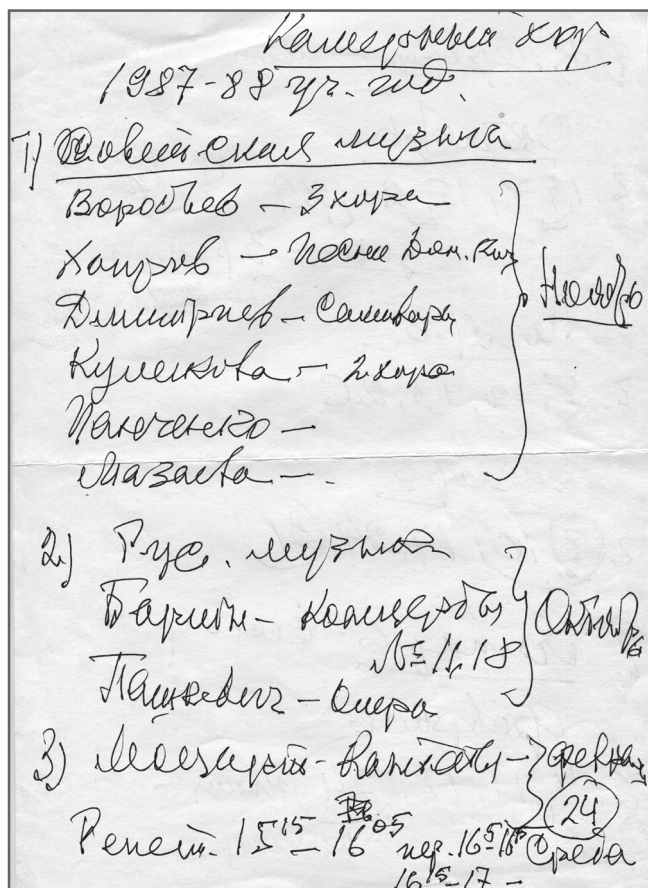 Камерный хор
1987-88 уч. год.
1) Советская музыка
Воробьев – 3 хора
– Песни Дон.
Ноябрь
Дмитриев – Самовары
Кулешова – 2 хора
Панюченко –
Мазаева –.
2) Рус. музыка
Октябрь
– Концерты
№ 11, 18
Пашкевич – Опера
3) Моцарт – Кантаты – февраль
24
Репет. 15¹⁵ – 16⁰⁵ пер. 16⁵-16¹⁵ Среда
16¹⁵-17 –